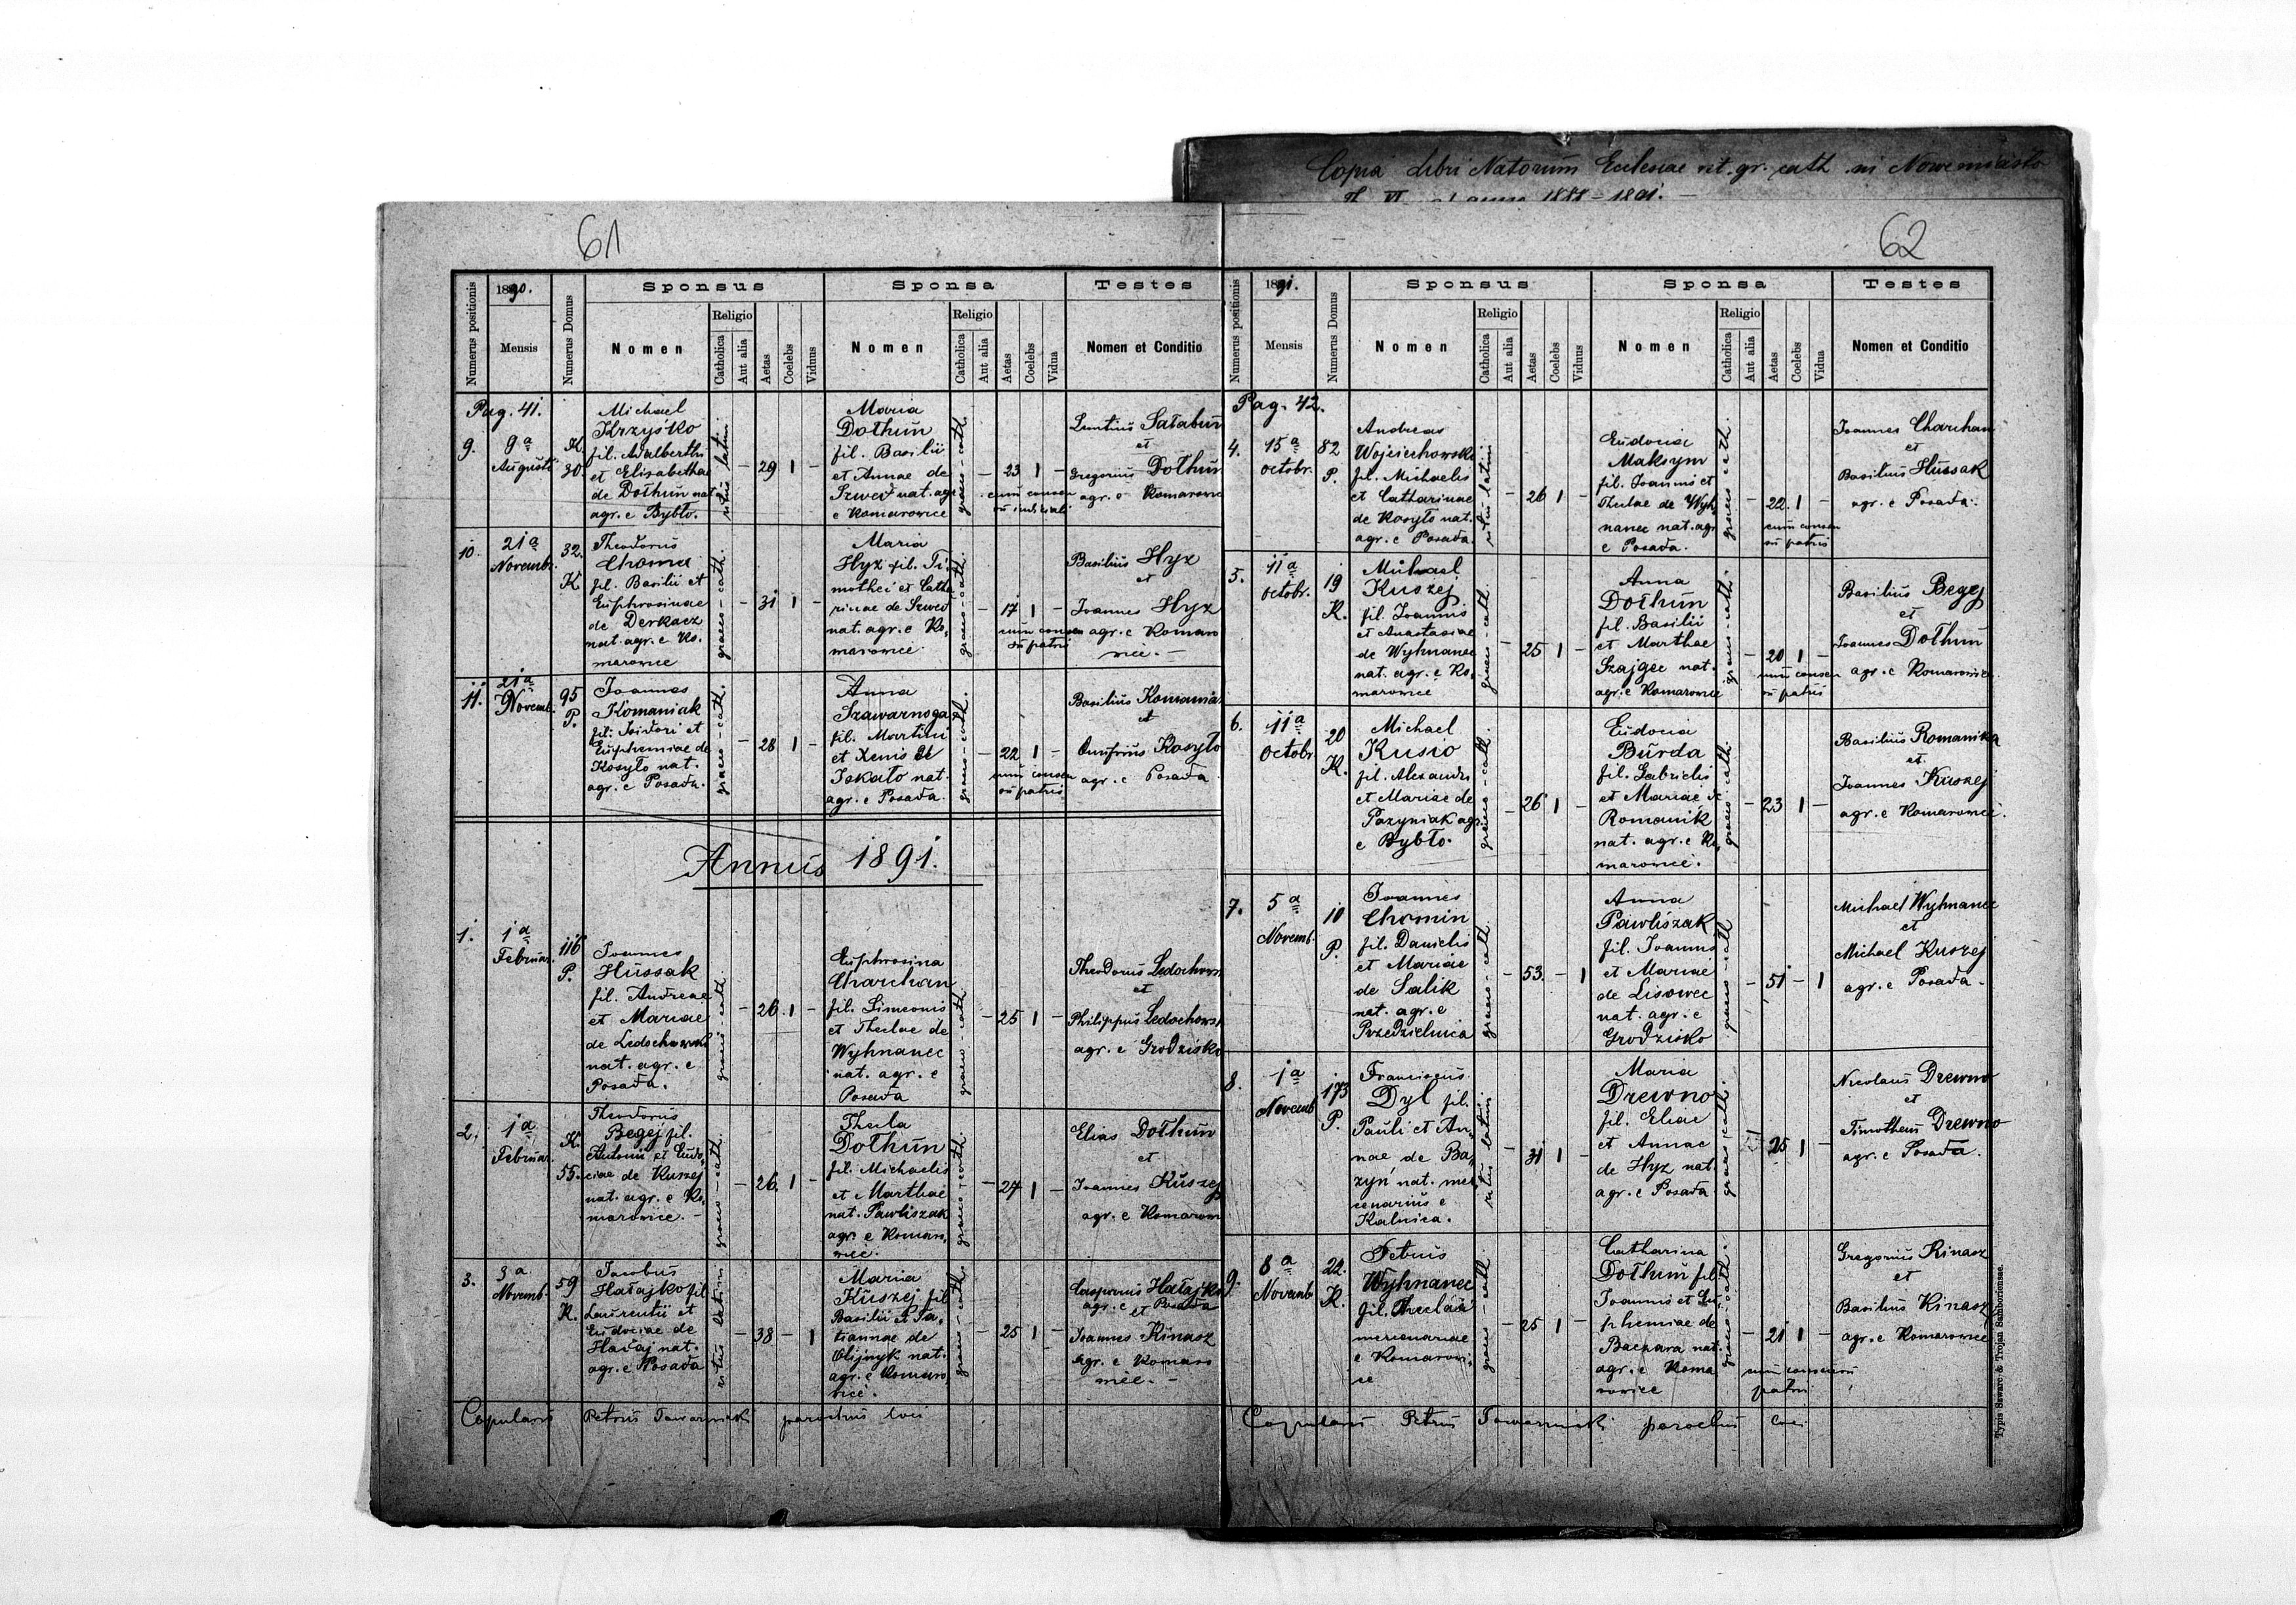 Copia Libri Natorum Ecclesiae rit. gr. cath. in Nowemiasto
T. VI ab anno 1888 – 1891. –
61
Numerus positionis
1890.
Mensis
Numerus Domus
Sponsus
Nomen
Religio
Catholica
Aut alia
Aetas
Coelebs
Viduus
Sponsa
Nomen
Religio
Catholica
Aut alia
Aetas
Coelebs
Vidua
Testes
Nomen et Conditio
Pag. 41.
9.
9a
Augusti
K.
30
Michael
Krzyśko
fil. Adalberthi
et Elisabethae
de Dołhun nat.
agr. e Bybło.
ritus latin.
– 29 1 –
Maria
Dołhun
fil. Basilii
et Annae de
Szwed nat. agr.
e Komarowice
graeco-cath.
– 23 1 –
cum consen
su
Leontius Sałabun
et
Gregorius Dołhun
agr. e Komarowice
10.
21a
Novemb.
32.
K.
Theodorus
Choma
fil. Basilii et
Euphrosinae
de Derkacz
nat. agr. e Ko,
marowice
graeco-cath.
– 31 1 –
Maria
Hyz fil. Ti,
mothei et Catha
rinae de Szwed
nat. agr. e Ko,
marowice.
graeco-cath.
– 17 1 –
cum consen
su patris
Basilius Hyz
et
Joannes Hyz
agr. e Komaro
wice. –
11.
21a
Novemb.
95
P.
Joannes
Komaniak
fil. Isidori et
Euphemiae de
Kosyło nat.
agr. e Posada.
graeco-cath.
– 28 1 –
Anna
Szawarnoga
fil. Martini
et Xenis de
Iskało nat.
agr. e Posada.
graeco-cath.
– 22 1 –
cum consen
su patris
Basilius Komania
et
Onufrius Kosyło
agr. e Posada
Annus 1891.
1.
1a
Februar.
116
P.
Joannes
Hussak
fil. Andreae
et Mariae
de Ledochowski
nat. agr. e
Posada.
graeco-cath.
– 26. 1 –
Euphrosina
Charchan
fil. Simeonis
et Theclae de
Wyhnanec
nat. agr. e
Posada
graeco-cath.
– 25 1 –
Theodorus Ledochows.
et
Philippus Ledochows.
agr. e Grodzisko
2.
1a
Februar.
K.
55.
Theodorus
Begej fil.
Antonii et Eudo,
ciae de Kuszej
nat. agr. e Ko,
marowice. –
graeco-cath.
– 26. 1 –
Thecla
Dołhun
fil. Michaelis
et Marthae
nat. Pawliszak
agr. e Komaro,
wice.
graeco-cath.
– 24 1 –
Elias Dołhun
et
Joannes Kuszej
agr. e Komarow
3.
3a
Novemb.
59
K.
Jacobus
Hałajko fil.
Laurentii et
Eudociae de
Hadaj nat.
agr. e Posada
ritus latini
– 38 – 1
Maria
Kuszej fil.
Basilii et Ta,
tiannae de
Olijnyk nat.
agr. e Komaro,
wice.
graeco-cath.
– 25 1 –
Casparus Hałajko
agr. e Posada
et
Joannes Kinasz
agr. e Komaro
wice. –
Copulans Petrus Tawarnicki parochus loci
62
Numerus positionis
1891.
Mensis
Numerus Domus
Sponsus
Nomen
Religio
Catholica
Aut alia
Aetas
Coelebs
Viduus
Sponsa
Nomen
Religio
Catholica
Aut alia
Aetas
Coelebs
Vidua
Testes
Nomen et Conditio
Pag. 42.
4.
15a
octobr.
82
P.
Andreas
Wojciechowski
fil. Michaelis
et Catharinae
de Kosyło nat.
agr. e Posada.
ritus latini
– 26 1 –
Eudocia
Maksym
fil. Joannis et
Theclae de Wyh,
nanec nat. agr.
e Posada.
graeco-cath.
– 22. 1 –
cum consen
su patris
Joannes Charchan
et
Basilius Hussak
agr. e Posada.
5.
11a
octobr.
19
K.
Michael
Kuszej
fil. Joannis
et Anastasiae
de Wyhnanec
nat. agr. e Ko,
marowice
graeco-cath.
– 25 1 –
Anna
Dołhun
fil. Basilii
et Marthae
Szajgec nat.
agr. e Komarowice
graeco-cath.
– 20 1 –
cum consen
su patris
Basilius Begej
et
Joannes Dołhun
agr. e Komarowice
6.
11a
Octobr.
20
K.
Michael
Kusio
fil. Alexandri
et Mariae de
Pazyniak agr.
e Bybło.
graeco-cath.
– 26 1 –
Eudocia
Burda
fil. Gabrielis
et Mariae de
Romanik
nat. agr. e Ko,
marowice.
graeco-cath.
– 23 1 –
Basilius Romanika
et
Joannes Kuszej
agr. e Komarowice.
7.
5a
Novemb.
10
P.
Joannes
Chomin
fil. Danielis
et Mariae
de Salik
nat. agr. e
Przedzielnica
graeco-cath.
– 53. – 1
Anna
Pawliszak
fil. Joannis
et Mariae
de Lisowec
nat. agr. e
Grodzisko
graeco-cath
– 51 – 1
Michael Wyhnanec
et
Michael Kuszej
agr. e Posada.
8.
1a
Novemb
173
P.
Franciscus
Dyl fil.
Pauli et An,
nae de Ba,
zyn nat. mer
cenarius e
Kalnica.
ritus latini
– 31 1 –
Maria
Drewno
fil. Eliae
et Annae
de Hyz nat.
agr. e Posada
graeco cath.
25 1 –
Nicolaus Drewno
et
Timotheus Drewno
agr. e Posada.
9.
8a
Novemb
22.
K.
Petrus
Wyhnanec
fil. Theclae
mercenariae
e Komarowi,
ce
graeco-cath.
– 25 1 –
Catharina
Dołhun fil.
Joannis et Eu,
phemiae de
Baczara nat.
agr. e Koma
rowice
graeco-cath.
– 21 1 –
cum consensu
patris
Gregorius Kinasz
et
Basilius Kinasz
agr. e Komarowice
Copulans Petrus Tawarnicki parochus loci
Typis Szwarc & Trojan Samboriensae.